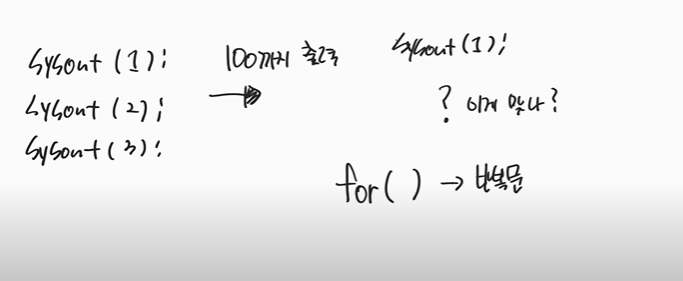 Sysout (1);
Sysout (2);
Sysout (3);
100까지 출력
Sysout (1);
? 이게 맞나?
for( ) → 반복문